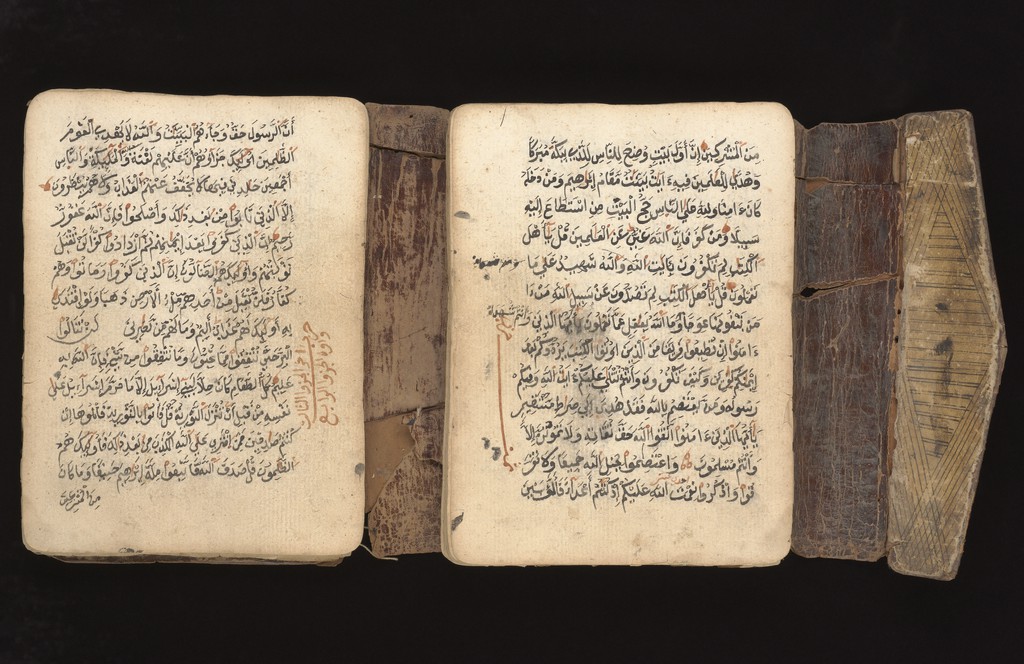 أن الرسول حق وجاءهم البينت والله لا يهدي القوم
الظلمين أوليك جزاؤهم أن عليهم لعنة الله والمليكة والناس
أجمعين خلدين فيها لا يخفف عنهم العذاب ولا هم ينظرون
إلا الذين تابوا من بعد ذلك وأصلحوا فإن الله غفور
رحيم إن الذين كفروا بعد إيمنهم ثم ازدادوا كفرا لن تقبل
توبتهم وأوليك هم الضالون إن الذين كفروا وماتوا وهم
كفار فلن يقبل من أحدهم ملء الأرض ذهبا ولو افتدى
به أوليك لهم عذاب أليم وما لهم من نصرين لن تنالوا
البر حتى تنفقوا مما تحبون وما تنفقوا من شيء فإن الله به
عليم كل الطعام كان حلا لبني إسرايل إلا ما حرم إسرايل على
نفسه من قبل أن تنزل التورية قل فاتوا بالتورية فاتلوها إن
كنتم صدقين فمن افترى على الله الكذب من بعد ذلك فأوليك هم
الظلمون قل صدق الله فاتبعوا ملة إبرهيم حنيفا وما كان
من المشركين
من المشركين إن أول بيت وضع للناس للذي ببكة مبركا
وهدى للعلمين فيه ءايت بينت مقام إبرهيم ومن دخله
كان ءامنا ولله على الناس حج البيت من استطاع إليه
سبيلا ومن كفر فإن الله غني عن العلمين قل يأهل
الكتب لم تكفرون بأيت الله والله شهيد على ما
تعملون قل يأهل الكتب لم تصدون عن سبيل الله من ءا
من تبغونها عوجا وأنتم شهداء وما الله بغفل عما تعملون يأيها الذين
ءامنوا إن تطيعوا فريقا من الذين أوتوا الكتب يردوكم بعد
إيمنكم كفرين وكيف تكفرون وأنتم تتلى عليكم ءايت الله وفيكم
رسوله ومن يعتصم بالله فقد هدي إلى صرط مستقيم
يأيها الذين ءامنوا اتقوا الله حق تقاته ولا تموتن إلا
وأنتم مسلمون واعتصموا بحبل الله جميعا ولا تفر
قوا واذكروا نعمت الله عليكم إذ كنتم أعداء فألف بين